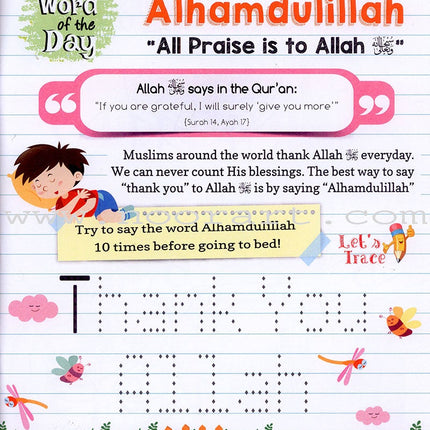 Word
of the
Day
Alhamdulillah
"All Praise is to Allah ﷻ"
Allah ﷻ says in the Qur'an:
"If you are grateful, I will surely 'give you more'"
{Surah 14, Ayah 17}
Muslims around the world thank Allah ﷻ everyday.
We can never count His blessings. The best way to say
"thank you" to Allah ﷻ is by saying "Alhamdulillah"
Try to say the word Alhamdulillah
10 times before going to bed!
Let's
Trace
Thank You
Allah